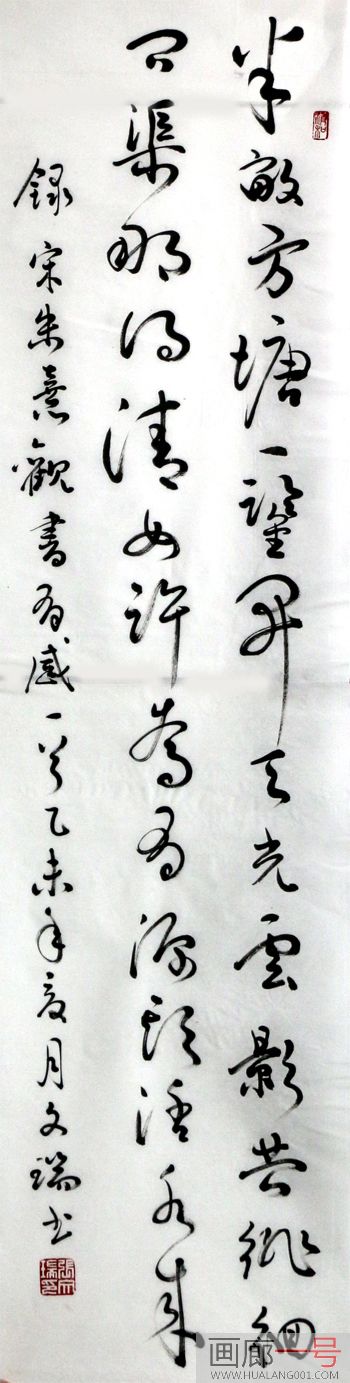 半畝方塘一鑒開天光雲影共徘徊
問渠那得清如許為有源頭活水來
錄宋朱熹觀書有感一首乙未年夏月文瑞书
張文瑞印
画廊一号
WWW.HUALANG001.COM